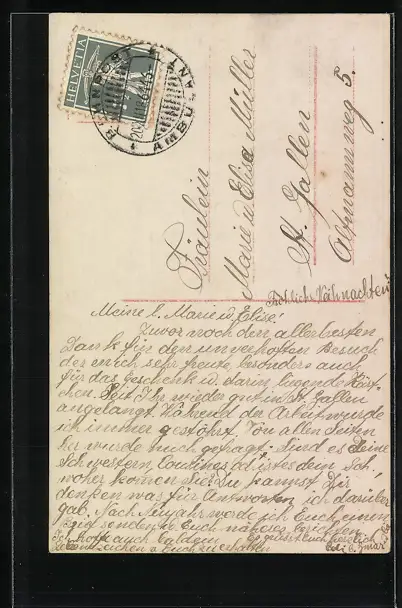 HELVETIA
AMBULANT
Fräulein
Marie u. Elise Müller
St. Gallen
Altmannweg 5.
Fröhliche Weihnachten!
Meine l. Marie u. Elise!
Zuvor noch den allerbesten
Dank für den unverhofften Besuch
der mich sehr freute, besonders auch
für das Geschenk u. darin liegende Kärt-
chen. Seit Ihr wieder gut in St. Gallen
angelangt. Während der Arbeit wurde
ich immer gestöhrt. Von allen Seiten
her wurde mich gefragt: Sind es Deine
Schwestern, Cousines, od. ist es dem Sch.
woher kommen Sie? Du kannst Dir
denken was für Antworten ich darüber
gab. Nach Neujahr werde ich Euch einen
senden, u. Euch näheres berichten.
Ich hoffe auch baldein Es grüsst Euch herzlich
Lebenszeichen v. Euch zu erhalten